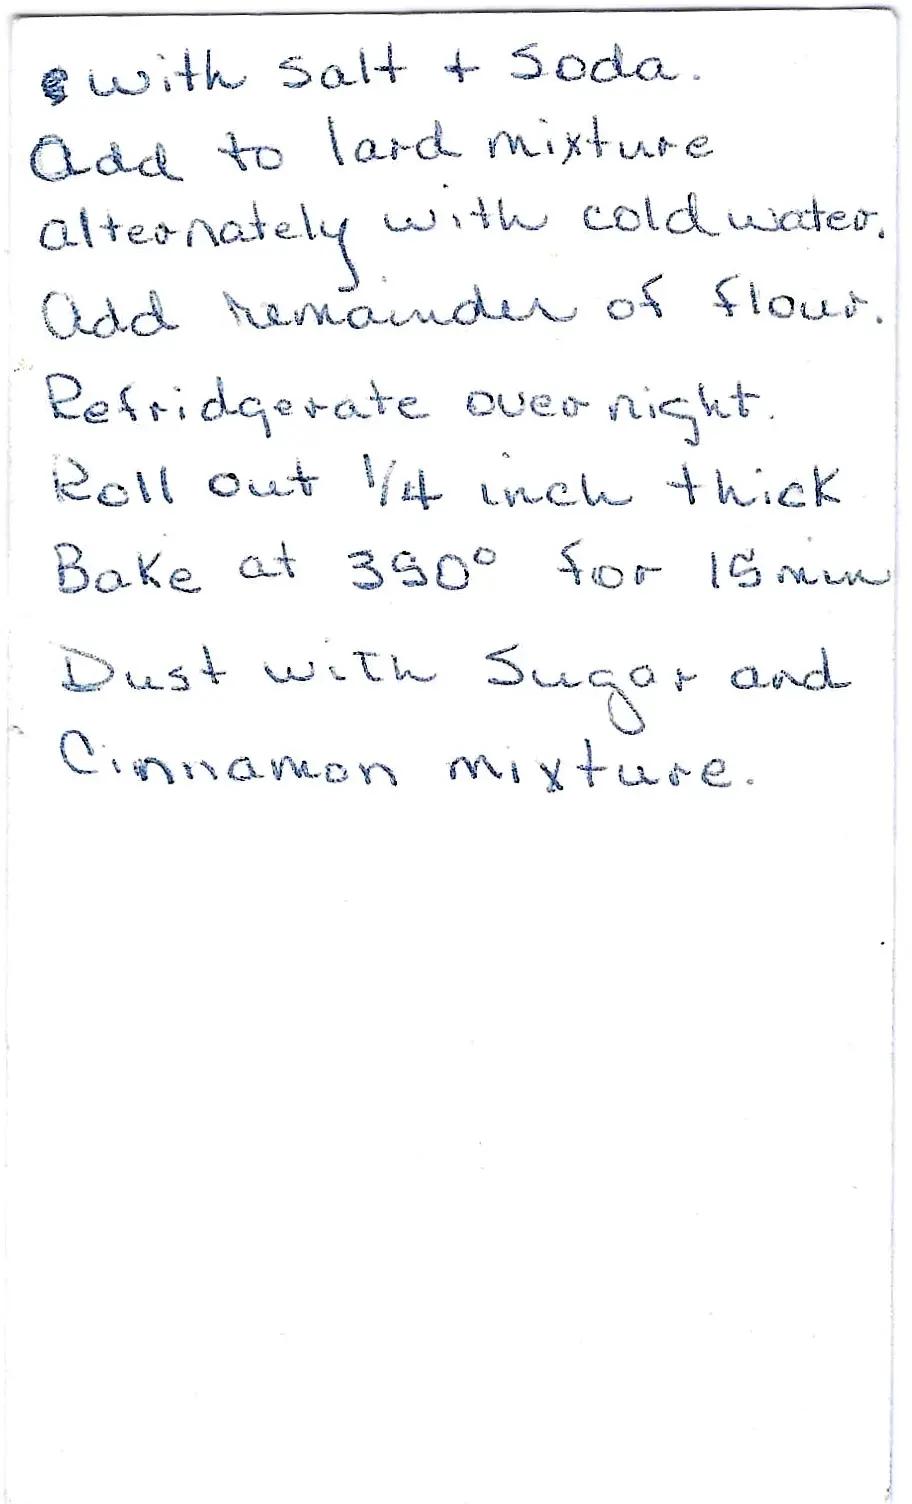 with salt + Soda.
Add to lard mixture
alternately with cold water.
Add remainder of flour.
Refridgerate over night.
Roll out 1/4 inch thick
Bake at 350° for 15 min
Dust with Sugar and
Cinnamon mixture.